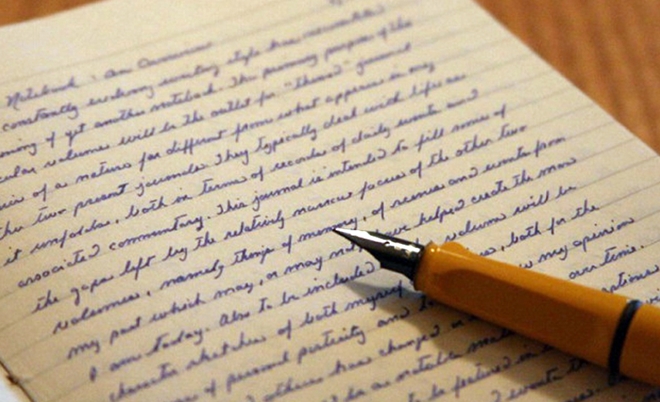 Notebook: An Overview
constantly evolving writing style has necessitated
of yet another notebook. The primary purpose of this
volume will be the outlet for "themed" journal
of a nature far different from what appears in my
two present journals. They typically deal with life as
it unfolds, both in terms of records of daily events and
associated commentary. This journal is intended to fill some of
the gaps left by the relatively narrow focus of the other two
volumes, namely things of memory, of scenes and events from
my past which may, or may not, have helped create the man
I am today. Also to be included volume will be
character sketches of both myself both for the
of personal posterity and my opinion
others have changed over time.
be as notable
to be featured in